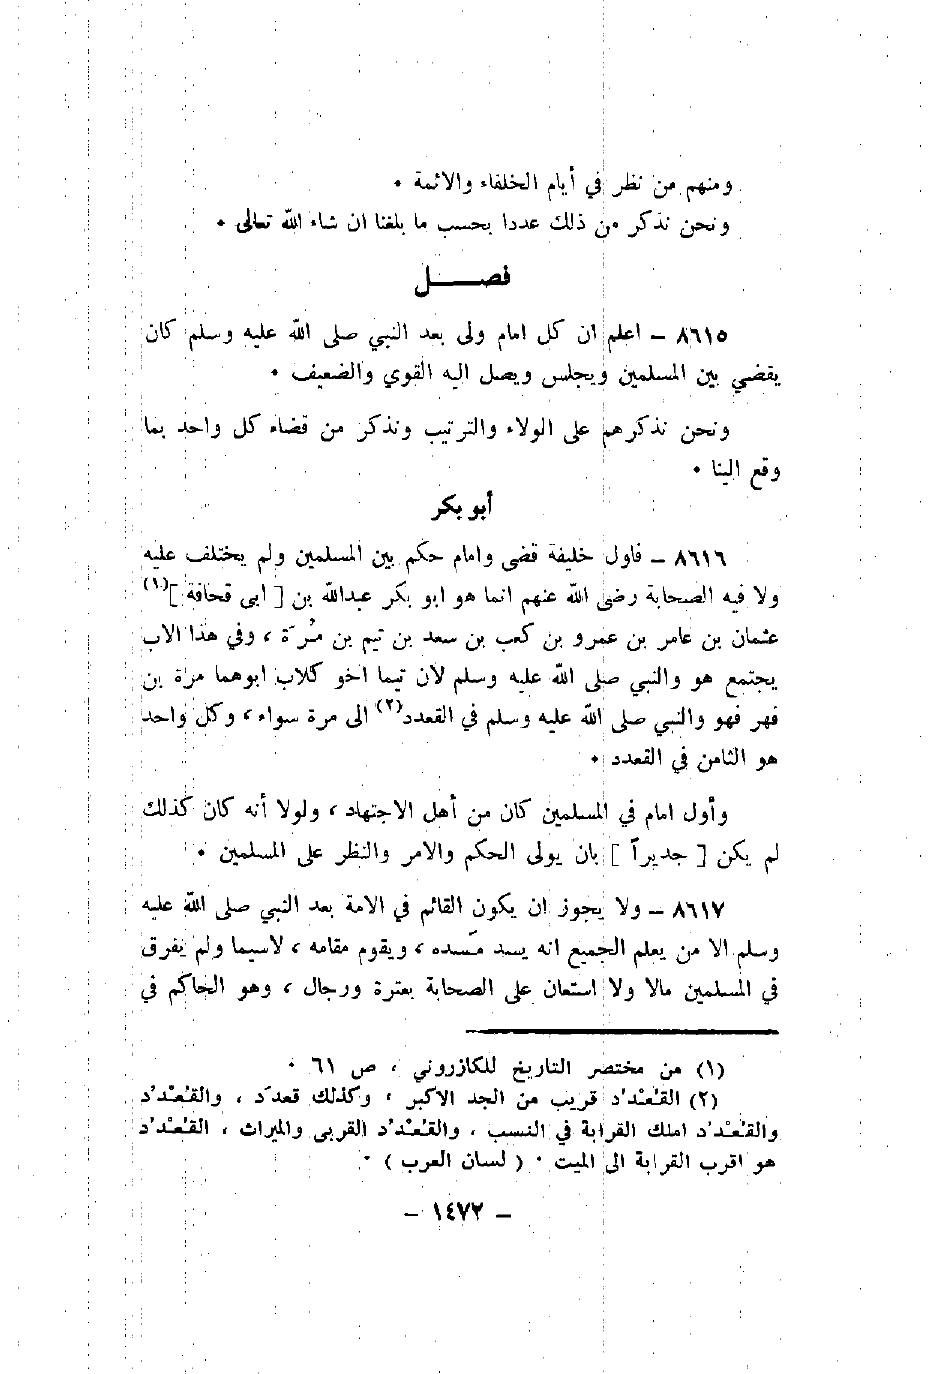 ومنهم من نظر في أيام الخلفاء والائمة •
ونحن نذكر من ذلك عددا بحسب ما بلغنا ان شاء الله تعالى •
فصــــل
٨٦١٥ – اعلم ان كل امام ولى بعد النبي صلى الله عليه وسلم كان
يقضي بين المسلمين ويجلس ويصل اليه القوي والضعيف •
ونحن نذكرهم على الولاء والترتيب ونذكر من قضاء كل واحد بما
وقع الينا •
أبو بكر
٨٦١٦ – فاول خليفة قضى وامام حكم بين المسلمين ولم يختلف عليه
ولا فيه الصحابة رضى الله عنهم انما هو ابو بكر عبدالله بن [ ابى قحافة ](١)
عثمان بن عامر بن عمرو بن كعب بن سعد بن تيم بن مُرَة ، وفي هذا الاب
يجتمع هو والنبي صلى الله عليه وسلم لان تيما اخو كلاب ابوهما مرة بن
فهر فهو والنبي صلى الله عليه وسلم في القعدد(٢) الى مرة سواء ، وكل واحد
هو الثامن في القعدد •
وأول امام في المسلمين كان من أهل الاجتهاد ، ولولا أنه كان كذلك
لم يكن [ جديراً ] بان يولى الحكم والامر والنظر على المسلمين •
٨٦١٧ – ولا يجوز ان يكون القائم في الامة بعد النبي صلى الله عليه
وسلم الا من يعلم الجميع انه يسد مَسده ، ويقوم مقامه ، لاسيما ولم يفرق
في المسلمين مالا ولا استعان على الصحابة بعترة ورجال ، وهو الحاكم في
(١) من مختصر التاريخ للكازروني ، ص ٦١ •
(٢) القُعْدُد قريب من الجد الاكبر ، وكذلك قعدَد ، والقُعْدُد
والقُعْدُد املك القرابة في النسب ، والقُعْدُد القربى والميراث ، القُعْدُد
هو اقرب القرابة الى الميت • ( لسان العرب ) •
– ١٤٧٢ –